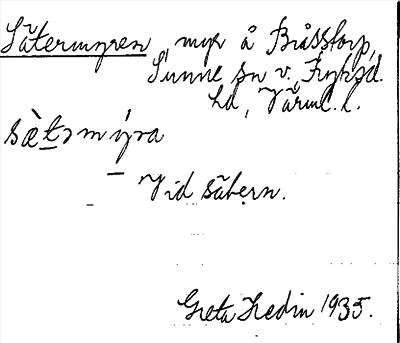 Sätermyren, myr å Bråsstorp,
Sunne sn v., Fryksd.
hd, Värml. l.
sæ̀tərmýra
Vid sätern.
Greta Hedin 1935.